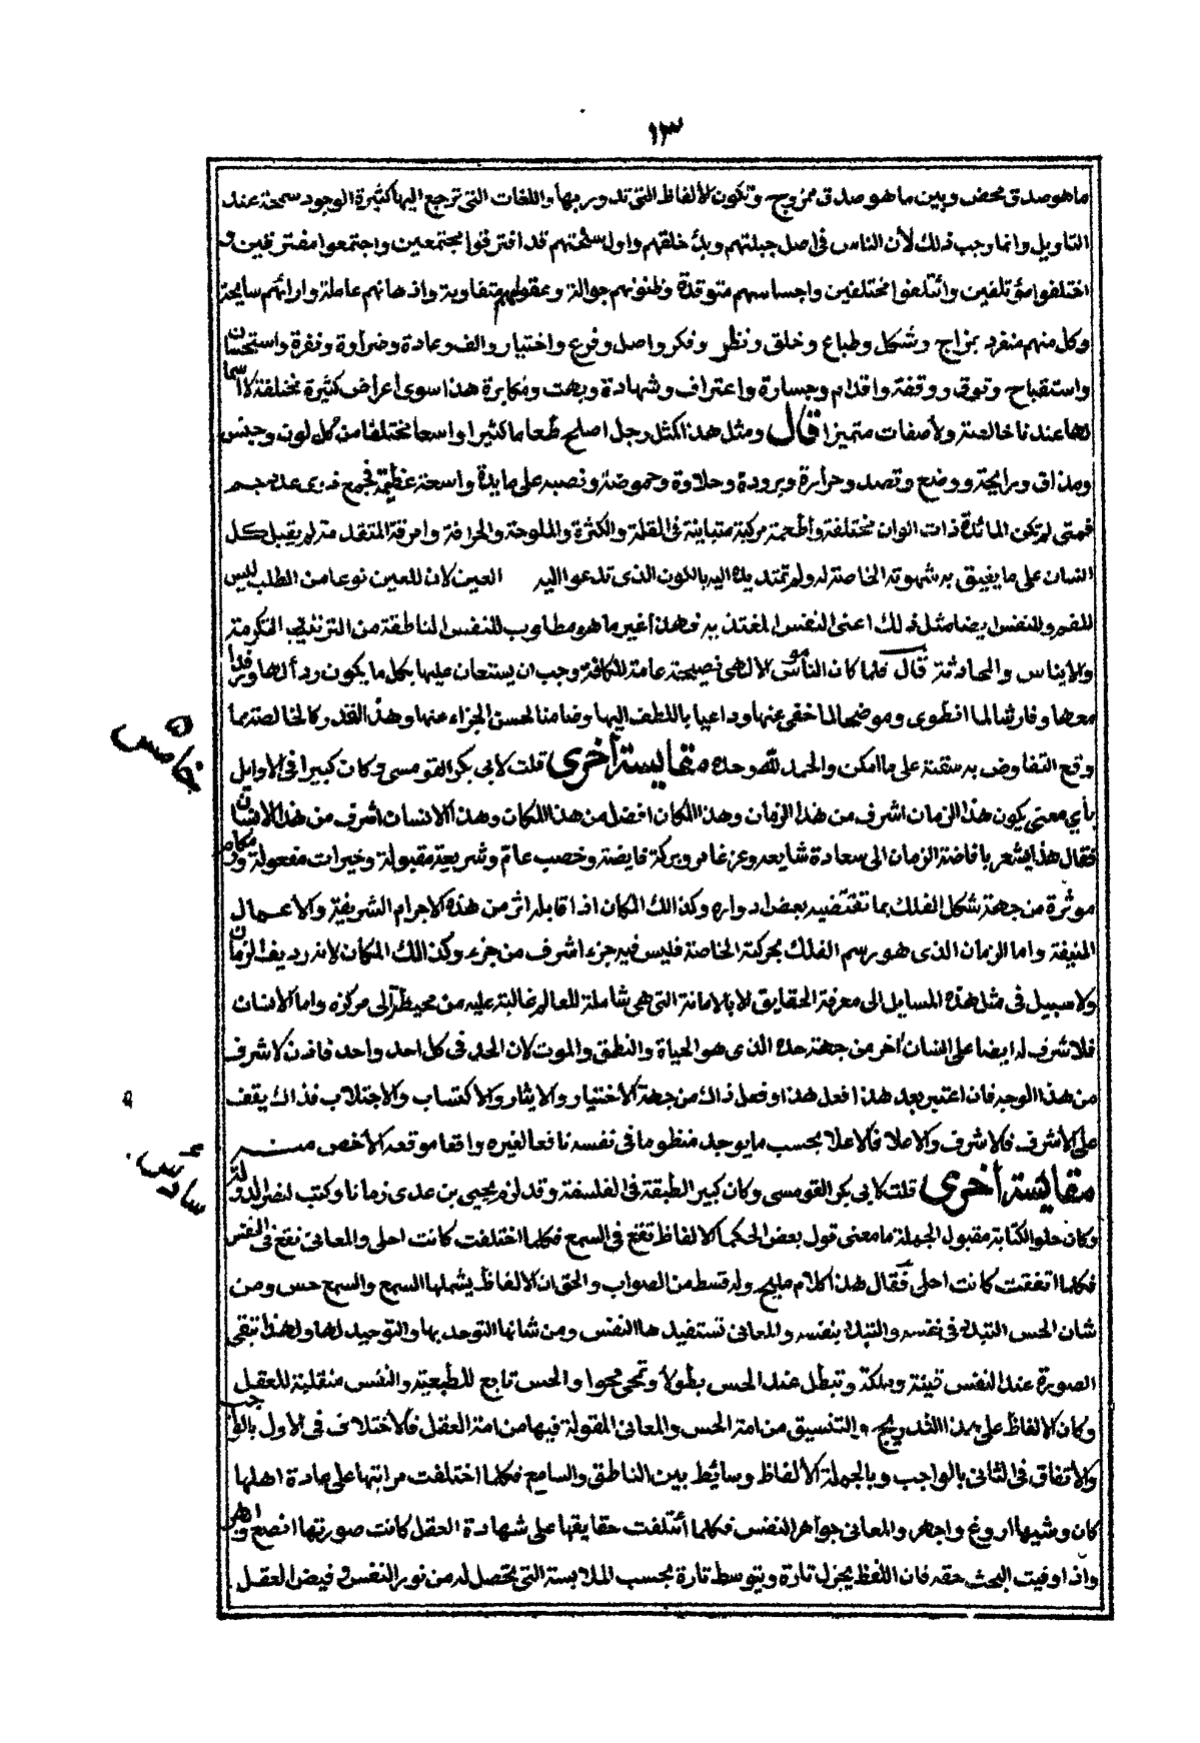 ١٣
ما هو صدق محض وبين ما هو صدق ممزوج وتكون لألفاظ التي تدور بها واللغات التي ترجع اليها كثيرة الوجود سمحة عند
التاويل وانما وجب ذلك لأن الناس في اصل جبلتهم وبدء خلقهم واول سنخهم قد افترقوا مجتمعين واجتمعوا مفترقين و
اختلفوا مؤتلفين وائتلفوا مختلفين واحساسهم متوقدة وظنونهم جوالة وعقولهم متفاوتة واذهانهم عاملة وارائهم سايحة
وكل منهم منفرد بمزاج وشكل وطباع وخلق ونظر وفكر واصل وفرع واختيار والف وعادة وضراوة ونفرة واستحسان
واستقباح وتوق ووقفة واقدام وجسارة واعتراف وشهادة وبهت ومكابرة هذا سوى أعراض كثيرة مختلفة لا اسما
لها عندنا خالصة ولأصفات متميزا قال ومثل هذا كمثل رجل اصلح طعاما كثيرا واسعا مختلفا من كل لون وجنس
ومذاق ورايحة ووضع وقصد وحرارة وبرودة وحلاوة وحموضة ونصبه على مايدة واسعة عظيمة فجمع
فمتى لم تكن المائدة ذات الوان مختلفة وأطعمة مركبة متباينة في القلة والكثرة والملوحة والحرافة وامرقة المتقدمة لم يقبل كل
انسان على ما يفيق به شهوته الخاصة له ولم تمتد يده اليه باللون الذي تدعوا اليه العين لان للعين نوعا من الطلب ليس
للفم وللنفس ايضا مثل ذلك اعنى النفس المغتذية فهذا غير ما هو مطلوب للنفس الناطقة من الترتيب التكرمة
والايناس والمحادثة قال فلما كان الناموس الالهى نصيحة عامة للكافة وجب ان يستعان عليها بكل ما يكون ردأ لها وفرا
معها وفارشا لما انطوى وموضحا لما خفى عنها وداعيا باللطف اليها وضامنا لحسن الجزاء عنها وهذا القدر كالخالصة بما
وقع التفاوض به سقنة على ما امكن والحمد لله وحده مقايسة أخرى قلت لابي بكر القومسى وكان كبيرا في الاوايل
بأي معنى يكون هذا الزمان اشرف من هذا الزمان وهذا المكان افضل من هذا المكان وهذا الانسان اشرف من هذا الانسان
فقال هذا يشعر بافاضة الزمان الى سعادة شايعه وعز غامر وبركة فايضة وخصب عام وشريعة مقبولة وخيرات مفعولة ومكارم
موثرة من جهة شكل الفلك بما تقتضيه بعض ادواره وكذالك المكان اذا قابله اثر من هذه الاجرام الشريفة والاعمال
المنيفة واما الزمان الذى هو رسم الفلك بحركته الخاصة فليس فيه جزء اشرف من جزء وكذالك المكان لانه رديف الزمان
ولا سبيل في مثل هذه المسايل الى معرفة الحقايق لا بالامانة التي هي شاملة للعالم غالبة عليه من محيطه الى مركزه واما الانسان
فلا شرف له ايضا على انسان أخر من جهة حده الذى هو الحياة والنطق والموت لان الحد فى كل احد واحد فاذن لا شرف
من هذا الوجه فان اعتبر بعد هذا فعل هذا وفعل ذاك من جهة الأختيار والايثار والاكتساب والاجتلاب فذاك يقف
على الأشرف فلاشرف والاعلا فالاعلا بحسب ما يوجد منظوما في نفسه نافعا لغيره واقعا موقعه الأخص منه
مقايسة أخرى قلت لابي بكر القومسى وكان كبير الطبقة في الفلسفة وقد لزم يحيى بن عدى زمانا وكتب لنصر الدولة
وكان حلو الكتابة مقبول الجملة ما معنى قول بعض الحكما الالفاظ تقع في السمع فكلما اختلفت كانت احلى والمعانى تقع في النفس
فكلما اتفقت كانت احلى فقال هذا كلام مليح وله قسط من الصواب والحق ان الالفاظ يشملها السمع والسمع حس ومن
شان الحس التبدد في نفسه والتبدد بنفسه والمعانى تستفيدها النفس ومن شانها التوحد بها والتوحيد لها ولهذا تبقى
الصورة عند النفس قينة وملكة وتبطل عند الحس بطولا وتمحى محوا والحس تابع للطبيعة والنفس منقلبة للعقل
وكان الالفاظ على هذا التدريج والتنسيق من امة الحس والمعانى المقولة فيها من امة العقل فالأختلاف في الاول بالواجب
والاتفاق في الثانى بالواجب وبالجملة الألفاظ وسايط بين الناطق والسامع فكلما اختلفت مراتبها على عادة اهلها
كان وشيها اروغ واجهر والمعانى جواهر النفس فكلما أئتلفت حقايقها على شهادة العقل كانت صورتها انصع وابهر
واذا وفيت البحث حقه فان اللفظ يجزل تارة ويتوسط تارة بحسب الملابسة التى تحصل له من نور النفس وفيض العقل
خامس ٥
سادس